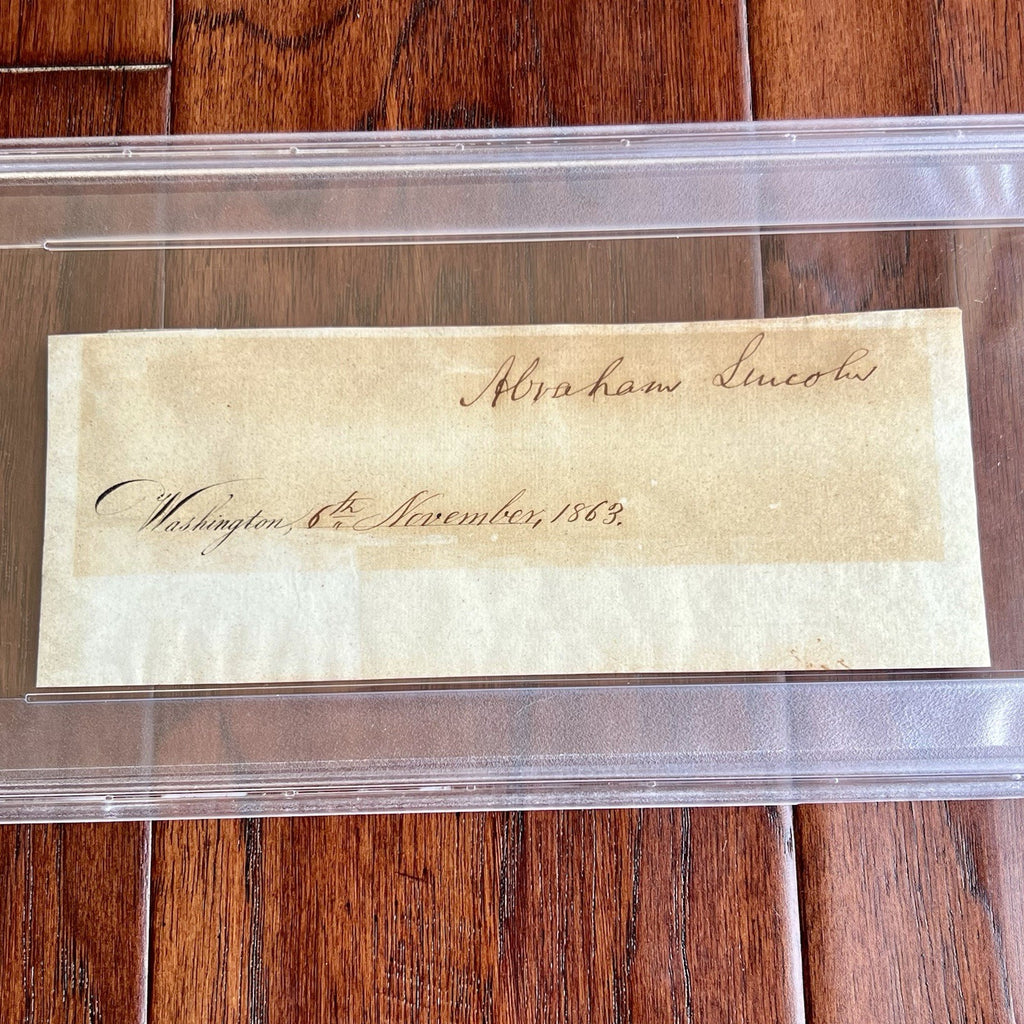 Abraham Lincoln
Washington, 6th November, 1863.